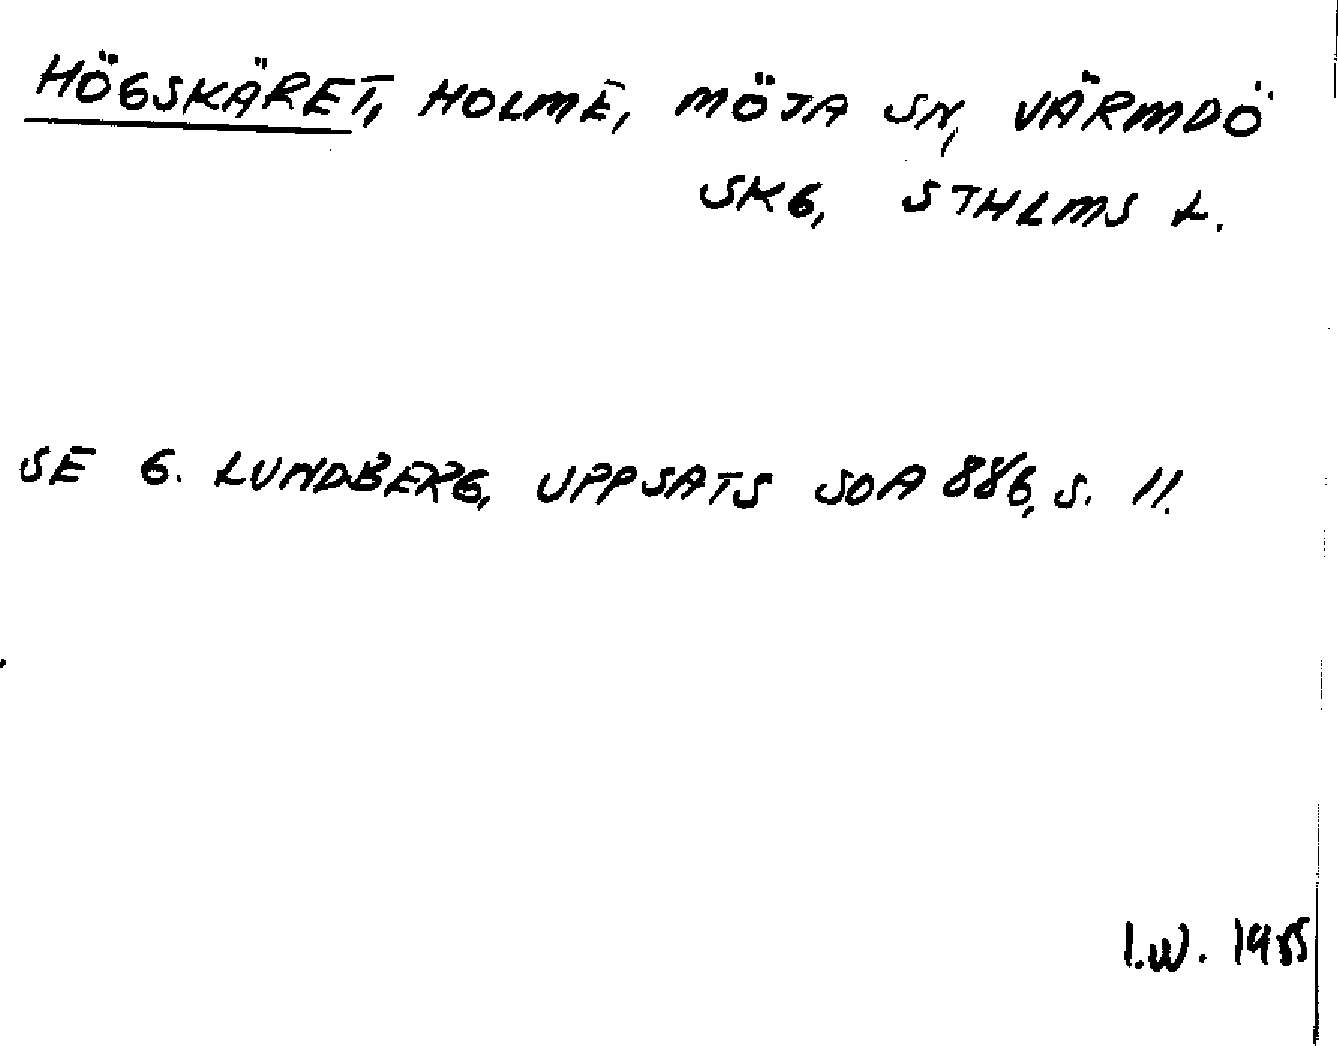 HÖGSKÄRET, HOLME, MÖJA SN, VÄRMDÖ
SKG, STHLMS L.
SE G. LUNDBERG, UPPSATS SOA 886, S. 11.
I.W. 1955